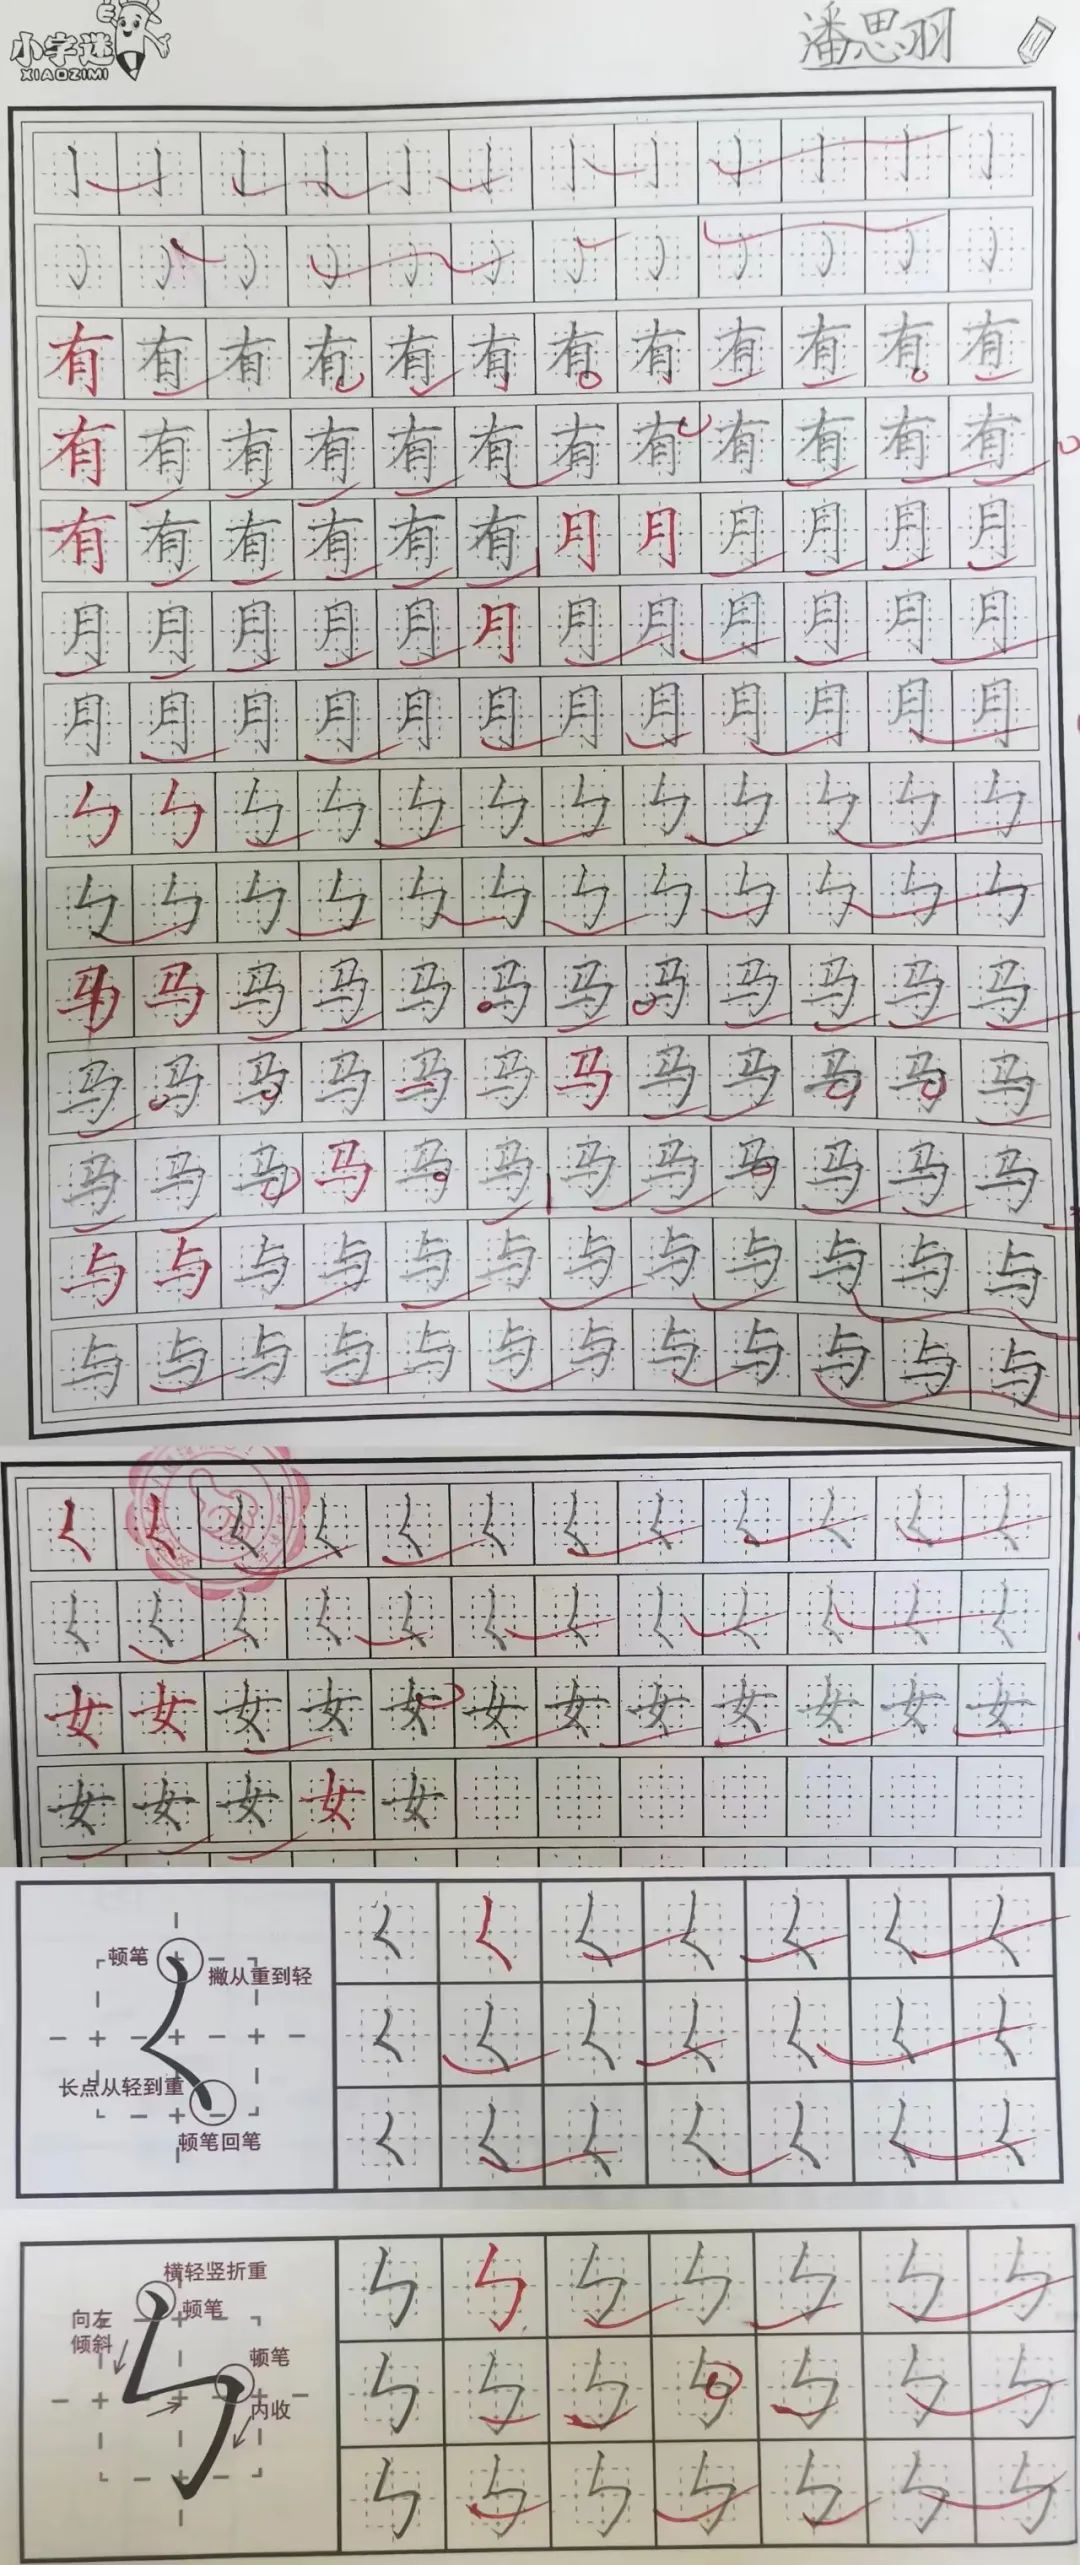 小字迷 潘思羽
XIAOZIMI
亅 亅 亅 亅 亅 亅 亅 亅 亅 亅 亅 亅
有 有 有 有 有 有 有 有 有 有 有 有
有 有 有 有 有 有 有 有 有 有 有 有
有 有 有 有 有 有 月 月 月 月 月 月
月 月 月 月 月 月 月 月 月 月 月 月
月 月 月 月 月 月 月 月 月 月 月 月
㇉ ㇉ ㇉ ㇉ ㇉ ㇉ ㇉ ㇉ ㇉ ㇉ ㇉ ㇉
㇉ ㇉ ㇉ ㇉ ㇉ ㇉ ㇉ ㇉ ㇉ ㇉ ㇉ ㇉
马 马 马 马 马 马 马 马 马 马 马 马
马 马 马 马 马 马 马 马 马 马 马 马
马 马 马 马 马 马 马 马 马 马 马 马
与 与 与 与 与 与 与 与 与 与 与 与
与 与 与 与 与 与 与 与 与 与 与 与
㇛ ㇛ ㇛ ㇛ ㇛ ㇛ ㇛ ㇛ ㇛ ㇛ ㇛ ㇛
㇛ ㇛ ㇛ ㇛ ㇛ ㇛ ㇛ ㇛ ㇛ ㇛ ㇛ ㇛
女 女 女 女 女 女 女 女 女 女 女 女
女 女 女 女 女
顿笔
撇从重到轻
长点从轻到重
顿笔回笔
㇛ ㇛ ㇛ ㇛ ㇛ ㇛ ㇛
㇛ ㇛ ㇛ ㇛ ㇛ ㇛ ㇛
㇛ ㇛ ㇛ ㇛ ㇛ ㇛ ㇛
横轻竖折重
顿笔
向左
倾斜
顿笔
内收
㇉ ㇉ ㇉ ㇉ ㇉ ㇉ ㇉
㇉ ㇉ ㇉ ㇉ ㇉ ㇉ ㇉
㇉ ㇉ ㇉ ㇉ ㇉ ㇉ ㇉